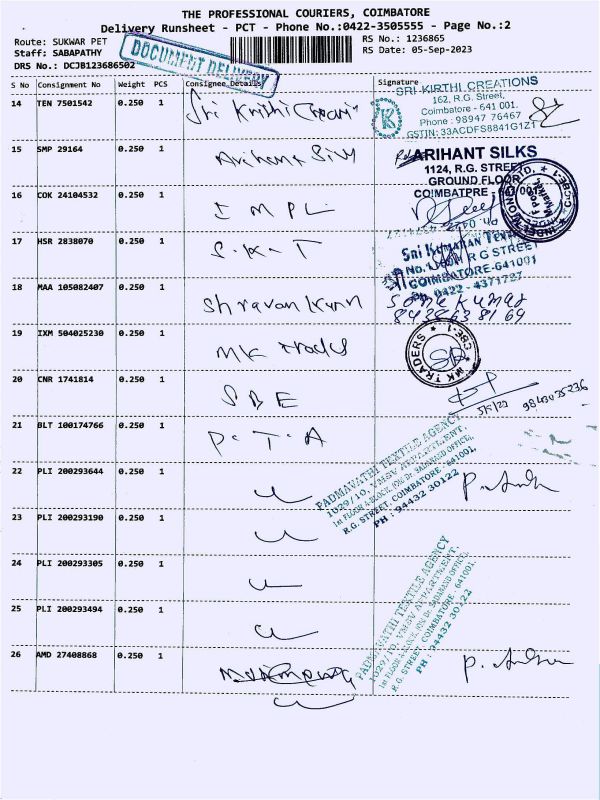 THE PROFESSIONAL COURIERS, COIMBATORE
Delivery Runsheet - PCT - Phone No.:0422-3505555 - Page No.:2
Route: SUKWAR PET
RS No.: 1236865
Staff: SABAPATHY
RS Date: 05-Sep-2023
DRS No.: DCJB123686502
DOCUMENT DELIVERY
S No Consignment No Weight PCS Consignee Details Signature
14 TEN 7501542 0.250 1 Sri Krithi
SRI KIRTHI CREATIONS
162, R.G. Street,
Coimbatore - 641 001.
Phone : 98947 76467
GSTIN: 33ACDFS8841G1Z1
15 SMP 29164 0.250 1
ARIHANT SILKS
1124, R.G. STREET
GROUND FLOOR
COIMBATPRE - 641 001
16 COK 24104532 0.250 1 I M P L
17 HSR 2838070 0.250 1 S.K.T
Sri Kumaran
R G STREET
COIMBATORE-641001
Ph: 0422 - 4371727
18 MAA 105082407 0.250 1 Shravan Kumar
19 IXM 504025230 0.250 1 MK Trades
MK TRADERS * CBE-1 *
20 CNR 1741814 0.250 1 S B E
5/9/23
21 BLT 100174766 0.250 1 P.T.A
PADMAVATHI TEXTILE AGENCY
1029/10, VMSV APPARTMENT,
R.G. STREET, COIMBATORE - 641001.
PH : 94432 30122
22 PLI 200293644 0.250 1
23 PLI 200293190 0.250 1
24 PLI 200293305 0.250 1
PADMAVATHI TEXTILE AGENCY
1029/10, VMSV APPARTMENT,
R.G. STREET, COIMBATORE - 641001.
PH : 94432 30122
25 PLI 200293494 0.250 1
26 AMD 27408868 0.250 1